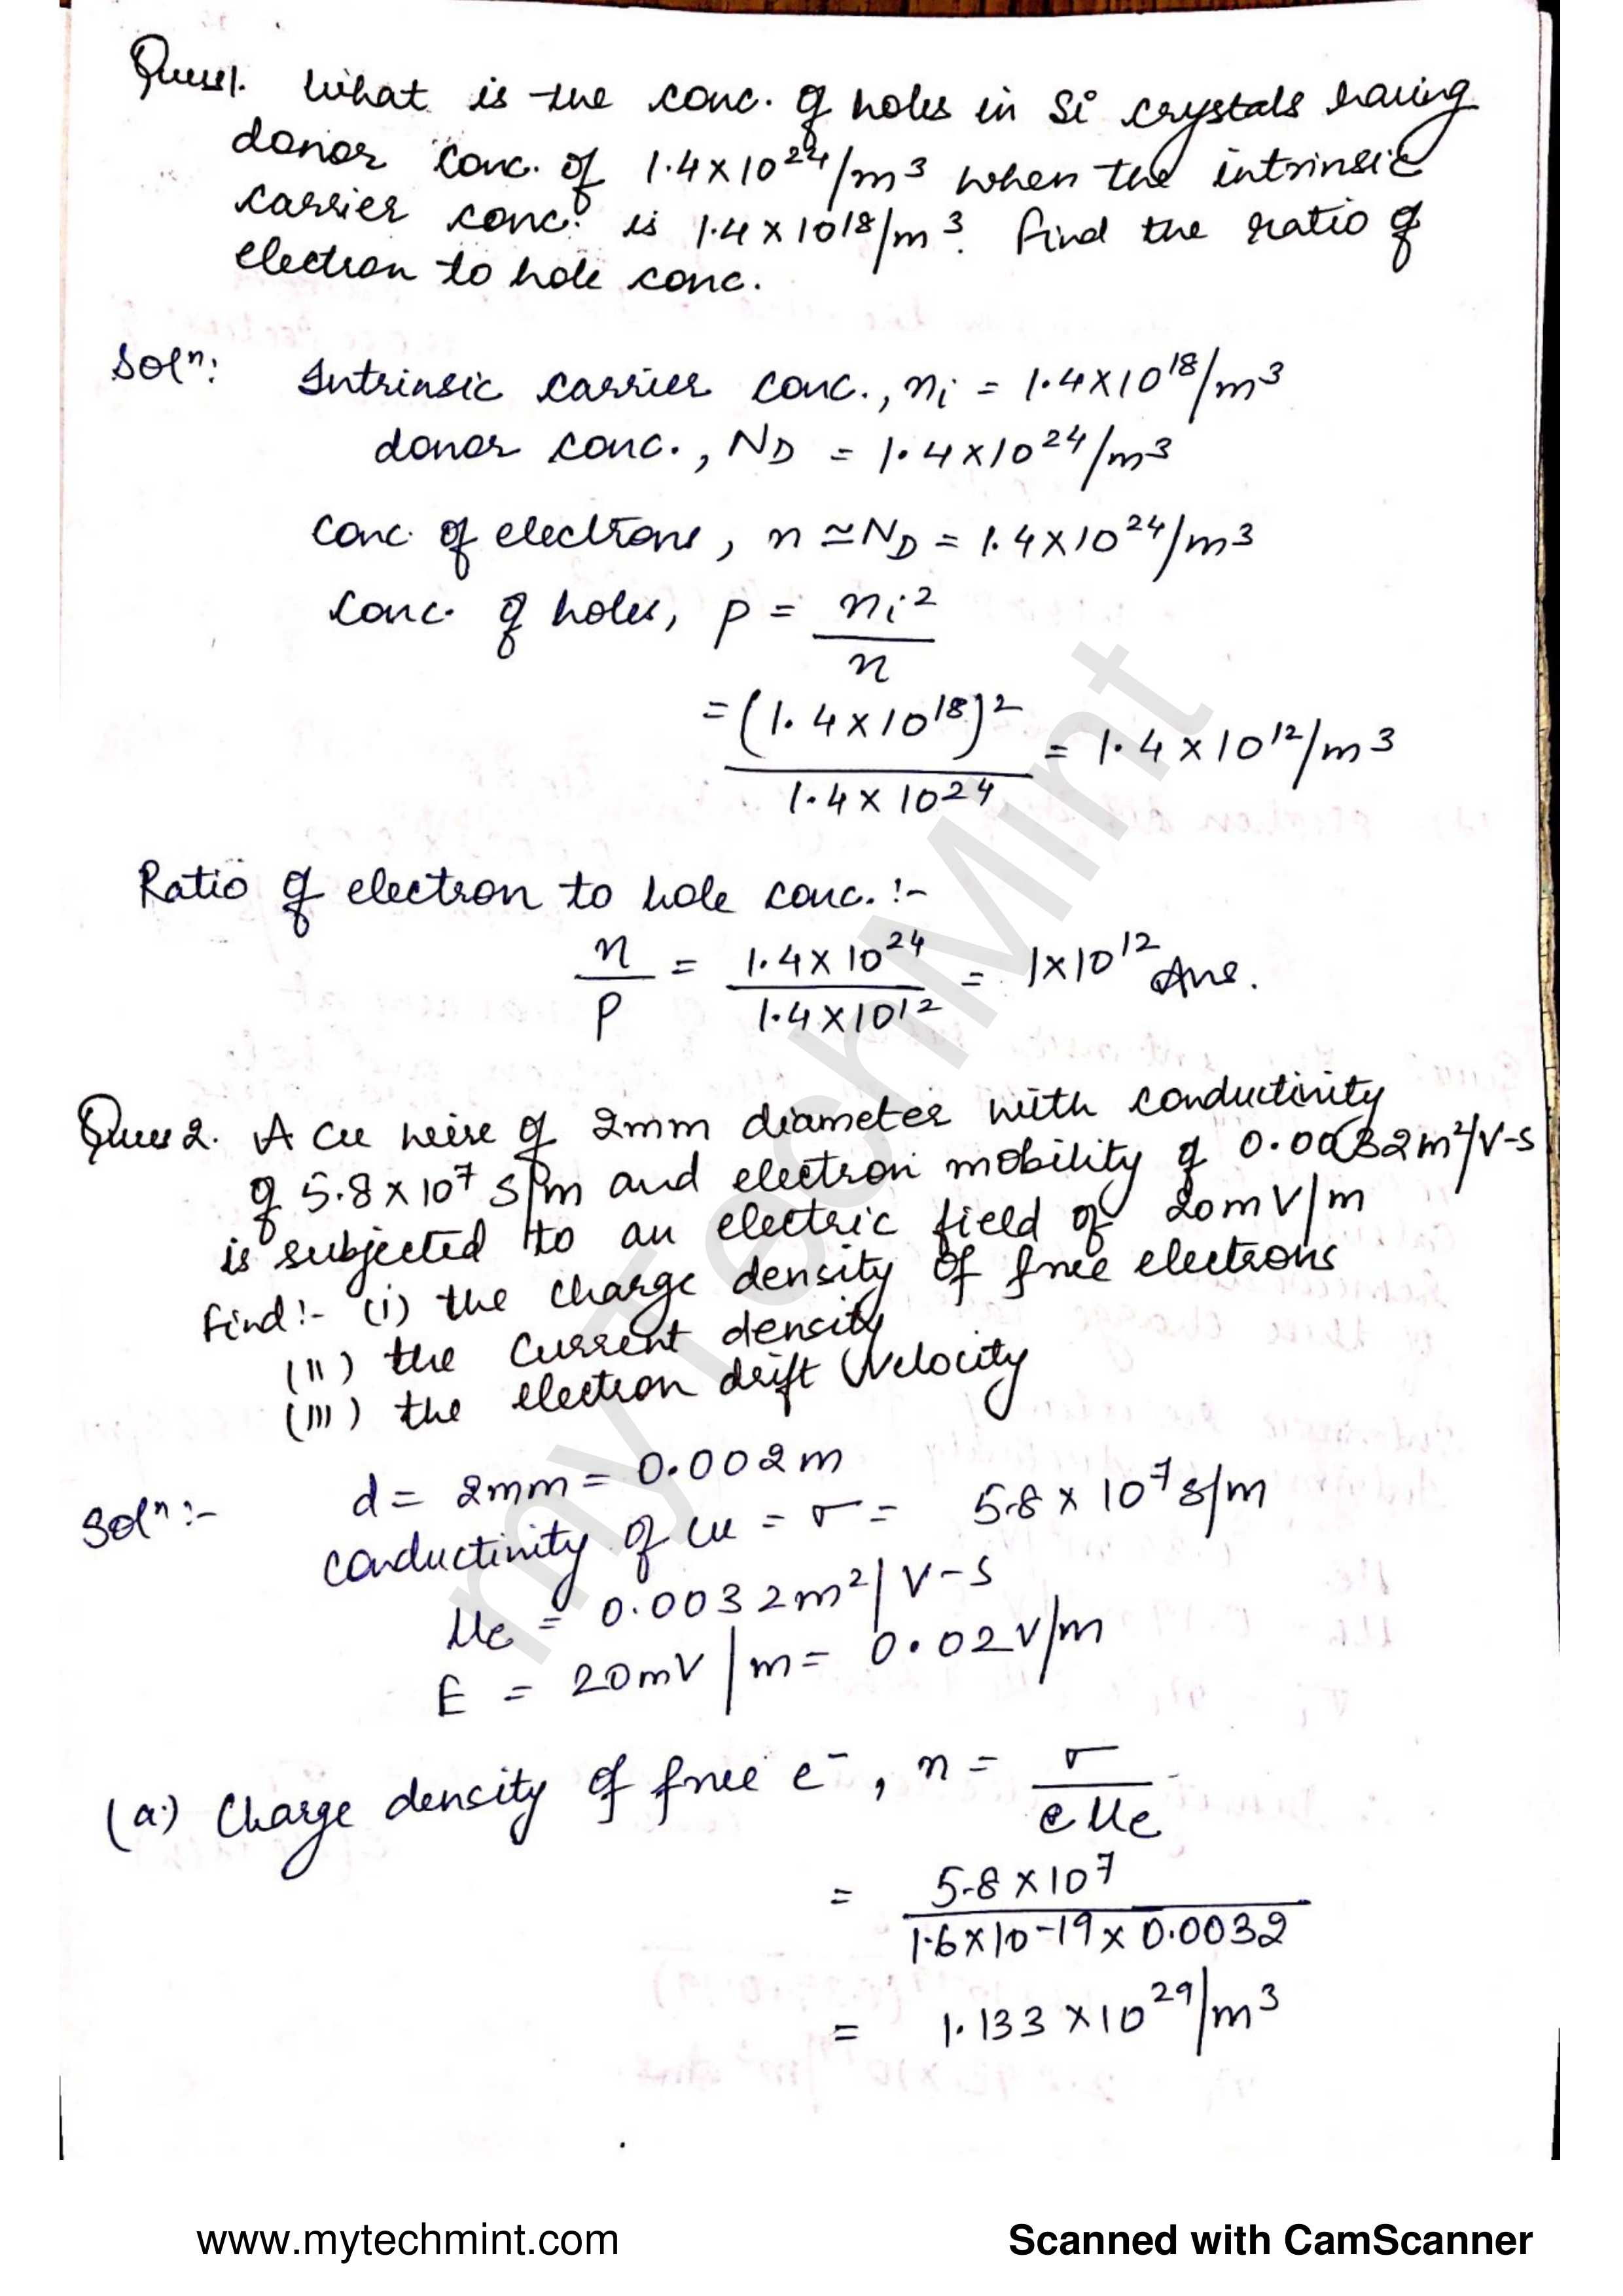 Ques1. What is the conc. of holes in Si crystals having
donor conc. of 1.4×10²⁴/m³ when the intrinsic
carrier conc. is 1.4×10¹⁸/m³. Find the ratio of
electron to hole conc.
Solⁿ: Intrinsic carrier conc., nᵢ = 1.4×10¹⁸/m³
donor conc., N_D = 1.4×10²⁴/m³
Conc. of electrons, n ≃ N_D = 1.4×10²⁴/m³
Conc. of holes, p = nᵢ²/n
= (1.4×10¹⁸)²/1.4×10²⁴ = 1.4×10¹²/m³
Ratio of electron to hole conc. :-
n/p = 1.4×10²⁴/1.4×10¹² = 1×10¹² Ans.
Ques 2. A Cu wire of 2mm diameter with conductivity
of 5.8×10⁷ s/m and electron mobility of 0.0032m²/V-s
is subjected to an electric field of 20mV/m
Find:- (i) the charge density of free electrons
(II) the current density
(III) the electron drift velocity
Solⁿ:- d = 2mm = 0.002m
conductivity of Cu = σ = 5.8×10⁷ s/m
μe = 0.0032m²/V-s
E = 20mV/m = 0.02V/m
(a) Charge density of free e⁻, n = σ/eμe
= 5.8×10⁷/1.6×10⁻¹⁹×0.0032
= 1.133×10²⁹/m³
myTechMint
www.mytechmint.com
Scanned with CamScanner